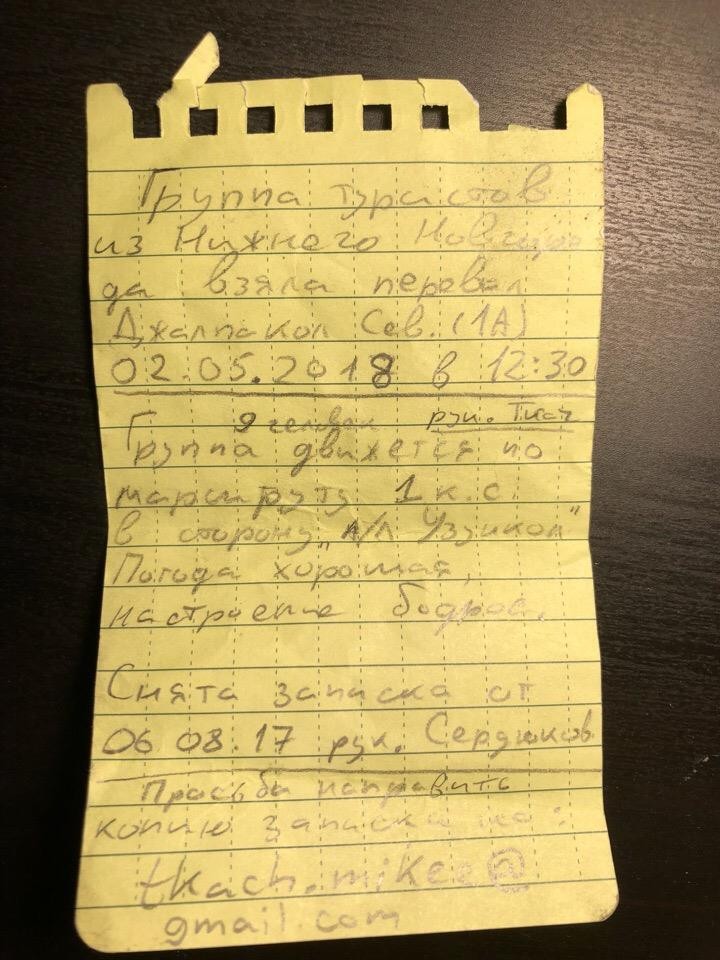 Группа туристов
из Нижнего Новгоро
да взяла перевал
Джалпакол Сев. (1А)
02.05.2018 в 12:30
9 человек рук. Ткач
Группа движется по
маршруту 1 к.с.
в сторону „а/л Узункол"
Погода хорошая,
настроение бодрое.
Снята записка от
06 08.17 рук. Сердюков
Просьба направить
копию записки на:
tkach.mikee@
gmail.com